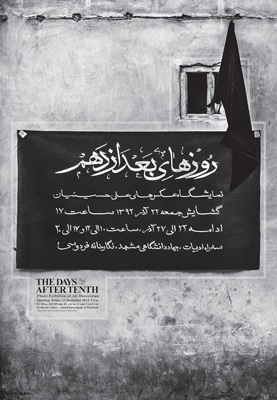 روزهای بعد از دهم
نمایشگاه عکس‌های علی حسینیان
گشایش جمعه ۲۲ آذر ۱۳۹۲ ساعت ۱۷
ادامه ۲۳ الی ۲۷ آذر، ساعت ۱۰ الی ۱۳ و ۱۷ الی ۲۰
سه‌راه ادبیات، جهاد دانشگاهی مشهد، نگارخانه فردوسی
THE DAYS
AFTER TENTH
Photo Exibition of Ali Hosseinian
Opening: Friday 13 December 2013, 5 p.m.